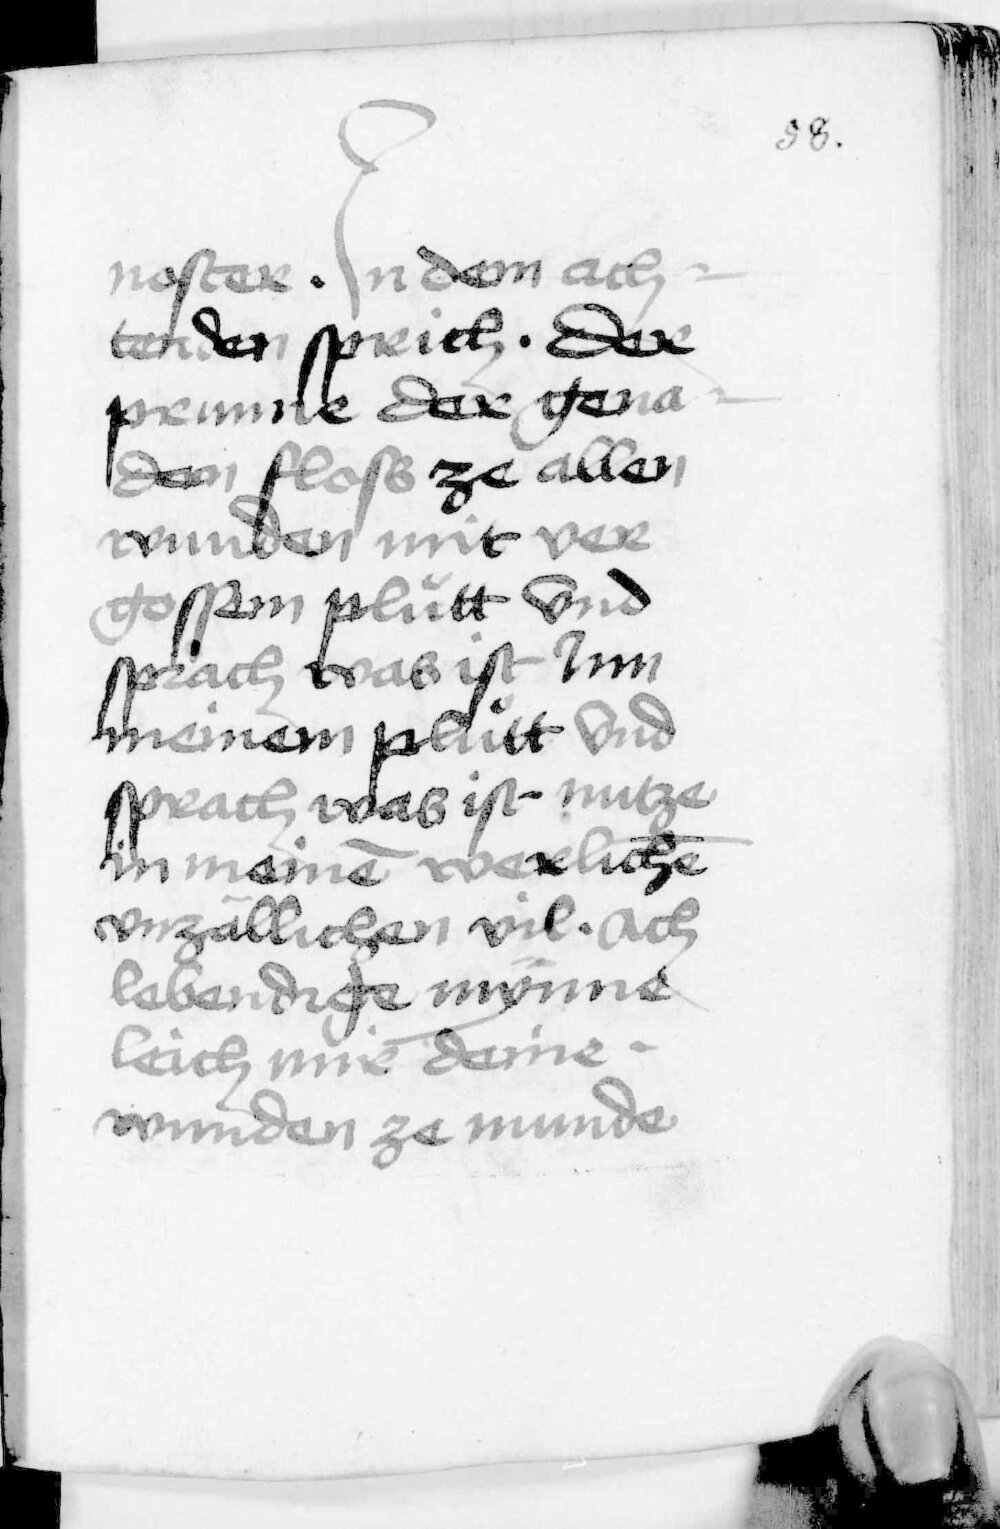 98.
noster . In dem ach-
tenden sprich . Der
prunne der gena-
den floss ze allen
wunden mit ver
gossem plůtt vnd
sprach was ist Inn
meinem plůtt vnd
sprach was ist nutze
in meinē werlichē
vnzällichen vil . Ach
lebendige mÿnne
leich mir deine -
wunden ze munde